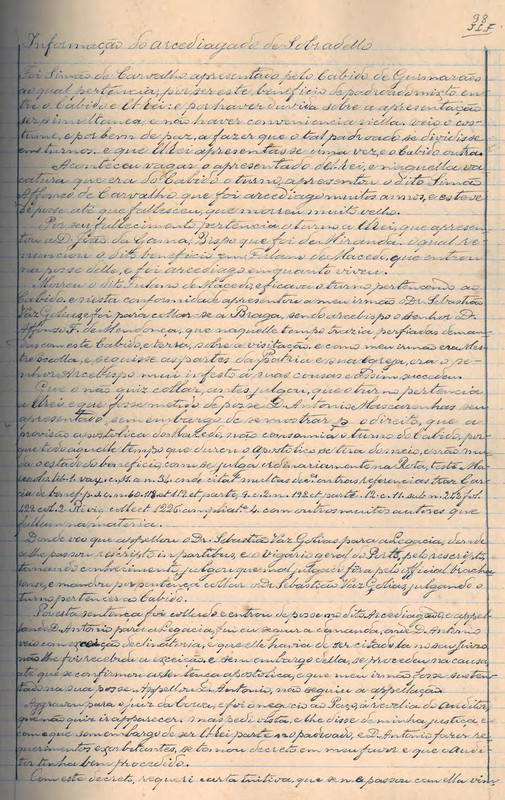 98
Informação do arcediagado de Sobradello
Foi Simão de Carvalho apresentado pelo Cabido de Guimarães
ao qual pertencia, por ser este beneficio do padroado mixto en-
tre o Cabido e El-rei e por haver duvida sobre a apresentação
ser simultanea, e não haver conveniencia n'ella, veio o cos-
tume, e por bem de paz, a fazer que o tal padroado se dividisse
em turnos, e que El-rei apresentasse uma vez, e o Cabido outra.
Aconteceu vagar o apresentado d'El-rei, e n'aquella va-
catura que era do Cabido o turno, apresentou o dito Simão
Affonso de Carvalho que foi arcediago muitos annos, e esteve
de posse até que falleceu, que morreu muito velho.
Por seu fallecimento pertencia o turno a El-rei, que apresen-
tou a D. João da Gama, Bispo que foi de Miranda, o qual re-
nunciou o dito beneficio em Fulano de Macedo, que entrou
na posse d'elle, e foi arcediago em quanto viveu.
Morreu o dito Fulano de Macedo, e ficava o turno pertencendo ao
Cabido, e n'esta conformidade apresentou a meu irmão o Dr. Sebastião
Vaz Golias, e foi para collar-se a Braga, sendo arcebispo o Senhor D.
Affonso F. de Mendonça, que naquelle tempo trazia porfiadas deman-
das com este Cabido, e terra, sobre a visitação, e como meu irmão era Mes-
tre Escolla, e seguisse as partes da Patria e sua Igreja, era o se-
nhor Arcebispo mui infesto á suas cousas e assim succedeu
Que o não quiz collar, antes julgou, que o turno pertencia
a El-rei e que fosse mettido de posse D. Antonio Mascarenhas seu
apresentado, sem embargo de se mostrar o direito, que a
provisão apostolica do Macedo, não consumia o turno do Cabido, por-
que todo aquelle tempo que durou o Apostolico se tira do meio, e não mu-
da o estado do beneficio, como se julga ordinariamente na Rota, teste
que não
fallam na materia.
D'onde veio que appellou o Dr. Sebastião Vaz Golias para a Legacia, donde
se lhe passou rescripto in partibus, e o Vigario geral do Porto, pelo rescripto,
tomando conhecimento, julgou que mal julgado fôra pelo official bracha-
rense, e mandou por sentença collar o Dr. Sebastião Vaz Golias, julgando o
turno pertencer ao Cabido.
Por esta sentença foi collado e entrou de posse no dito Arcediagado, e appel-
lando D. Antonio para a Legacia, foi eu seguir a demanda, onde D. Antonio
veio com exceição declinatoria, e que elle havia de ser citado lá no seu Juizo
não lhe foi recebida a exceição e sem embargo d'ella, se procedeu na causa,
até que se confirmou a sentença apostolica, e que meu irmão fosse susten-
tado na sua posse. Appellou D. Antonio, não seguiu a appelação.
Aggravou para o Juiz da Corôa, e foi o negocio ao Paço á revelia do Auditor,
que não quiz lá apparecer, mas pedi vista, e lhe disse de minha justiça, e
com o que sem embargo de ser El-rei parte no padroado, e D. Antonio fazer re-
querimentos exorbitantes, se tomou decreto em meu favor e que o Audi-
tor tinha bem procedido.
Com este decreto, requeri carta tuitiva, que se me passou com ella vim